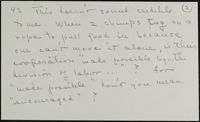 42 This doesn't sound credible
to me. When 2 chimps tug on a
rope to pull food in because
one can't move it alone, is their
cooperation "made possible by the
division of labor..."? for
"made possible" don't you mean
"encouraged"?